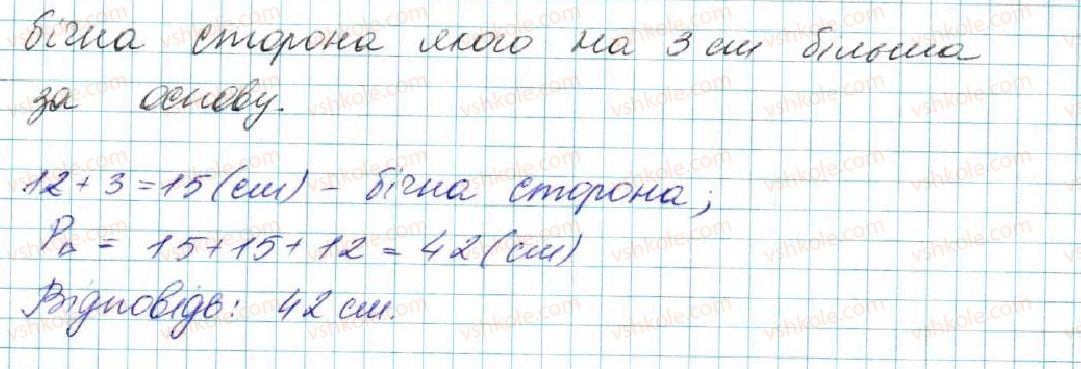 бічна сторона якого на 3 см більша
за основу.
12 + 3 = 15 (см) – бічна сторона;
P△ = 15 + 15 + 12 = 42 (см)
Відповідь: 42 см.